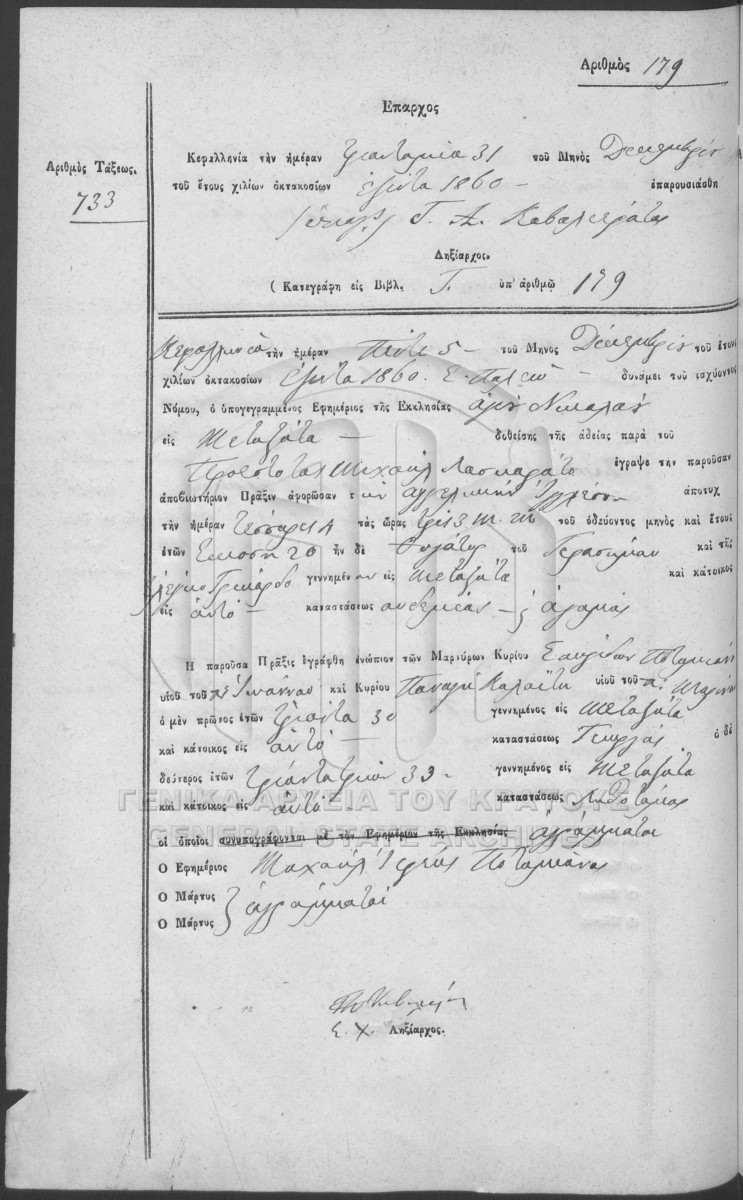 Αριθμὸς 179
Επαρχος
Αριθμὸς Τάξεως.
733
Κεφαλληνία τὴν ἡμέραν τριανταμία 31 τοῦ Μηνὸς Δεκεμβρίου
τοῦ ἔτους χιλίων ὀκτακοσίων ἑξῆντα 1860 – ἐπαρουσιάσθη
Γ. Α. Καβαλιεράτος
Ληξίαρχος.
( Κατεγράφη εἰς Βιβλ. Γ. ὑπ' ἀριθμῷ 179
Κεφαλληνία τὴν ἡμέραν Πέντε 5 – τοῦ Μηνος Δεκεμβρίου τοῦ ἔτους
χιλίων ὀκτακοσίων ἑξῆντα 1860. Ε. Παλαιὸ – δυνάμει τοῦ ἰσχύοντος
Νόμου, ὁ ὑπογεγραμμένος Ἐφημέριος τῆς Ἐκκλησίας ἁγίου Νικολάου
εἰς Μεταξάτα – δοθείσης τῆς ἀδείας παρὰ τοῦ
Προεστότος Μιχαὴλ Λασκαράτο ἔγραψε τὴν παροῦσαν
ἀποβιωτήριον Πρᾶξιν ἀφορῶσαν τὴν ἀγγελικὴν ἀποτυχ
τὴν ἡμέραν τέσσαρες 4 τὰς ὥρας τρὶς 3 Μ. Μ τοῦ ὁδεύοντος μηνὸς καὶ ἔτους
ἐτῶν Εἴκοση 20 ἦν δὲ θυγάτηρ τοῦ Γερασίμου καὶ τῆς
γεννημένην εἰς Μεταξάτα καὶ κάτοικος
εἰς αὐτὸ – καταστάσεως οὐδεμίας – ἄγαμος
Η παροῦσα Πρᾶξις ἐγράφθη ἐνώπιον τῶν Μαρτύρων Κυρίου Σπυρίδων Ποταμιάνο
υἱοῦ τοῦ π. Ἰωάννου καὶ Κυρίου Παναγὴ Καλαΐτη υἱοῦ τοῦ π. Μαρίνου
ὁ μὲν πρῶτος ἐτῶν τριάντα 30 γεννημένος εἰς Μεταξάτα
καὶ κάτοικος εἰς αὐτὸ – καταστάσεως Γεωργὸς ὁ δὲ
δεύτερος ἐτῶν τριαντατριῶν 33 – γεννημένος εἰς Μεταξάτα
καὶ κάτοικος εἰς αὐτὸ καταστάσεως
ΓΕΝΙΚΑ ΑΡΧΕΙΑ ΤΟΥ ΚΡΑΤΟΥΣ
GENERAL STATE ARCHIVES
οἱ ὁποῖοι συνυπογράφονται μὲ τὸν Ἐφημέριον τῆς Ἐκκλησίας ἀγράμματοι
Ο Ἐφημέριος Μιχαὴλ Ἱερεὺς Ποταμιάνος
Ο Μάρτυς
Ο Μάρτυς } ἀγράμματοι
Ε. Χ. Ληξίαρχος.